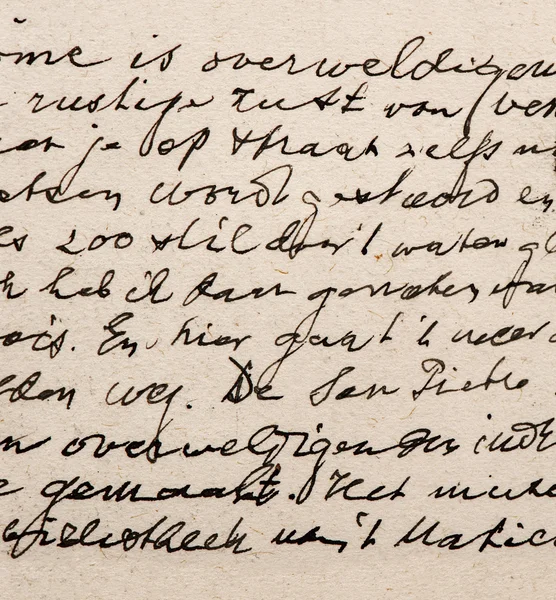 ome is overweldigen
rustige rust van Ven
je op straat zelfs
etsen wordt gestoord en
es zoo stil door 't water gl
k heb ik daar genoten
ois. En hier gaat 't weer
den weg. De San Pietro
n overweldigenden indr
e gemaakt. Het
bibliotheek van 't Vatica